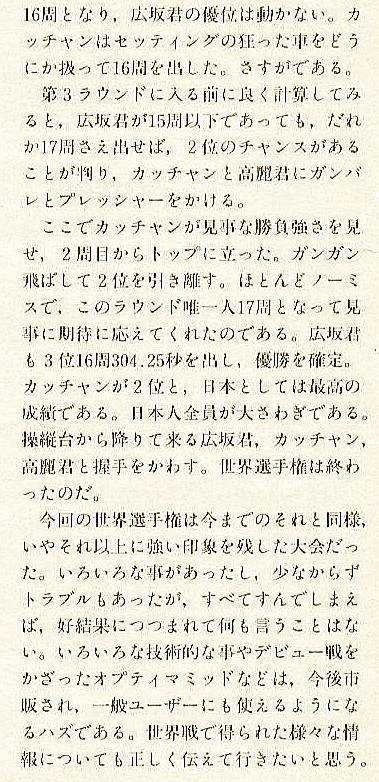 16周となり，広坂君の優位は動かない。カ
ッチャンはセッティングの狂った車をどう
にか扱って16周を出した。さすがである。
　第３ラウンドに入る前に良く計算してみ
ると，広坂君が15周以下であっても，だれ
か17周さえ出せば，２位のチャンスがある
ことが判り，カッチャンと高麗君にガンバ
レとプレッシャーをかける。
　ここでカッチャンが見事な勝負強さを見
せ，２周目からトップに立った。ガンガン
飛ばして２位を引き離す。ほとんどノーミ
スで，このラウンド唯一人17周となって見
事に期待に応えてくれたのである。広坂君
も３位16周304.25秒を出し，優勝を確定。
カッチャンが２位と，日本としては最高の
成績である。日本人全員が大さわぎである。
操縦台から降りて来る広坂君，カッチャン，
高麗君と握手をかわす。世界選手権は終わ
ったのだ。
　今回の世界選手権は今までのそれと同様，
いやそれ以上に強い印象を残した大会だっ
た。いろいろな事があったし，少なからず
トラブルもあったが，すべてすんでしまえ
ば，好結果につつまれて何も言うことはな
い。いろいろな技術的な事やデビュー戦を
かざったオプティマミッドなどは，今後市
販され，一般ユーザーにも使えるようにな
るハズである。世界戦で得られた様々な情
報についても正しく伝えて行きたいと思う。